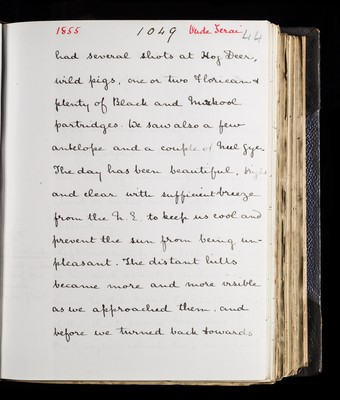 1855 1049 Oude Terai 44
had several shots at Hog Deer,
wild pigs, one or two Floriean &
plenty of Black and
partridges. We saw also a few
antelope and a couple of Neel Gye.
The day has been beautiful,
and clear with sufficient breeze
from the N.E. to keep us cool and
prevent the sun from being un-
pleasant. The distant hills
became more and more visible
as we approached them, and
before we turned back towards